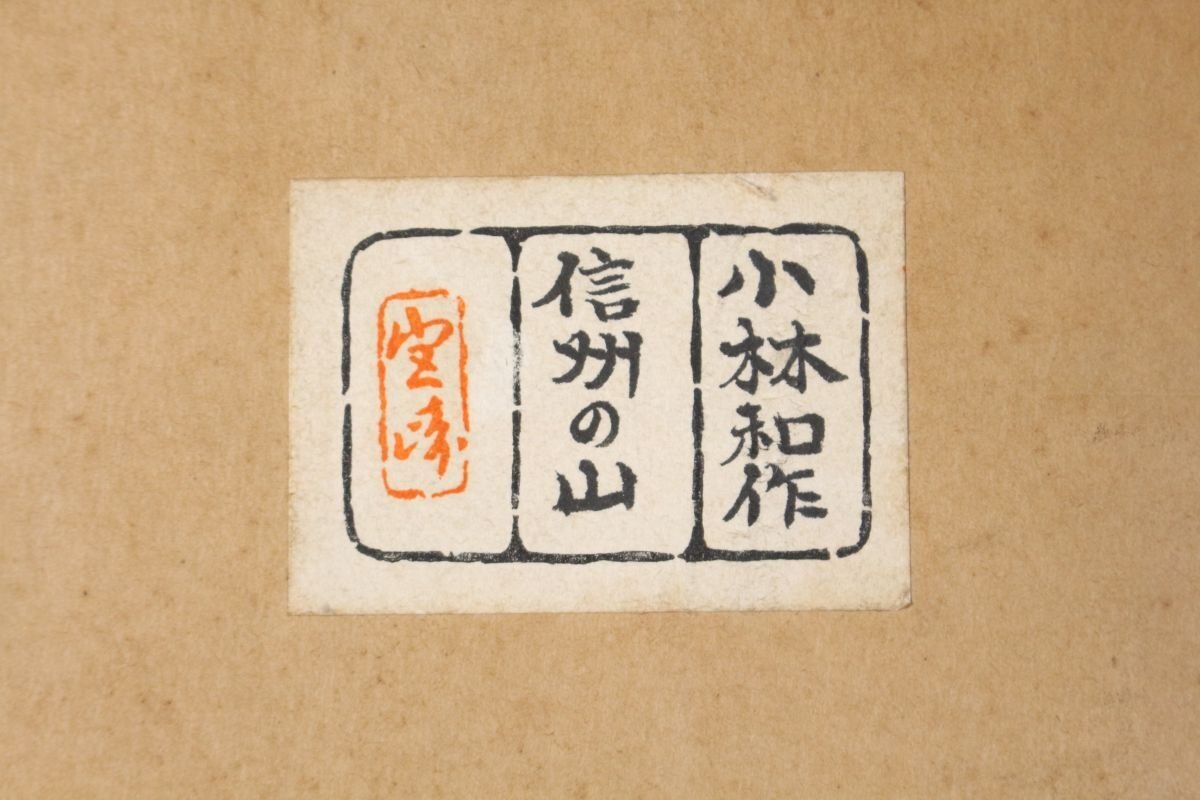 小林和作
信州の山